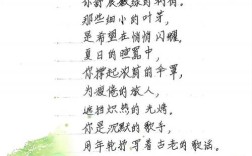 你舒展嫩绿的新俏。
那些细小的叶芽，
是希望在悄悄闪耀。
夏日的喧嚣中，
你撑起浓荫的伞罩，
为疲倦的旅人，
遮挡炽热的光烤。
你是沉默的歌手，
用年轮抒写着古老的歌谣。